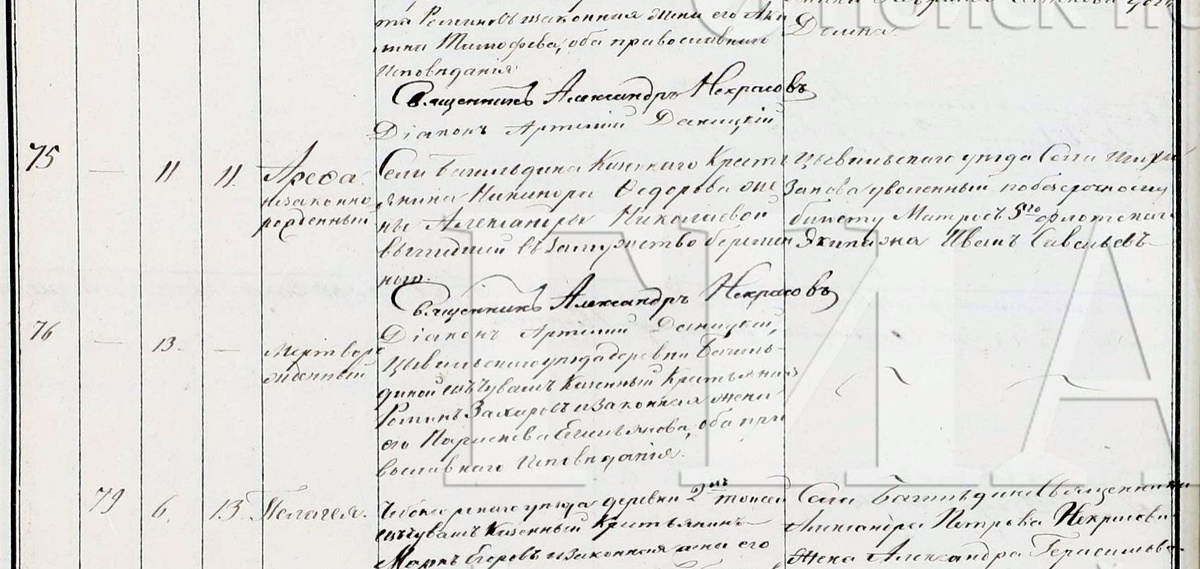 законныя жены его
Тимофева, оба православнаго
Исповѣданія
Священникъ Александръ Некрасовъ
Діаконъ Артемій Даницкій
75 — 11 11. Арефа незаконно рожденный
Села Багильдина Казеннаго Кресть
янина Никифора Федорова же
ны Александры Николаевой
вышедшей въ замужство беремен
ною.
Цывильскаго уѣзда Села
уволенный по безсрочному
билету Матросъ 5го флотскаго
Экипажа Иванъ Савельевъ
Священникъ Александръ Некрасовъ
Діаконъ Артемій Даницкій,
76 — 13 — Мертворо жденный
Цывильскаго уѣзда деревни Багиль
диной изъ Чувашъ Казенный Крестьянинъ
Романъ Захаровъ и законная жена
его Емельянова, оба пра
вославнаго Исповѣданія.
79 6. 13 Пелагея.
Чебоксарскаго уѣзда деревни 2й
изъ Чувашъ Казенный Крестьянинъ
Маркъ Егоровъ и законная жена его
Села Багильдина Священника
Александра Петрова Некрасова
жена Александра Герасимова